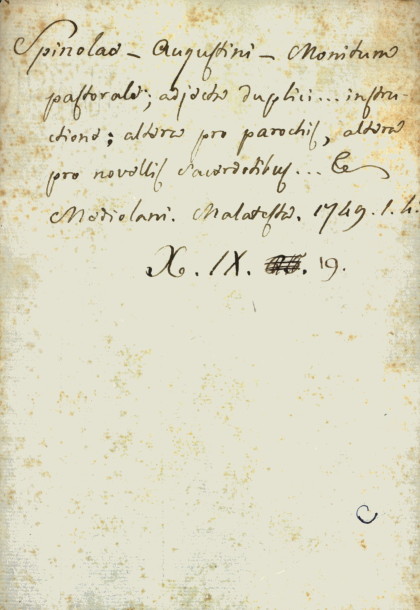 Spinolae - Augustini - Monitum
pastorale; adjecta duplici... instru-
ctione; altera pro parochis, altera
pro novellis Sacerdotibus...
Mediolani. Malatesta. 1749. 1. 4.
X. IX. 19.
C